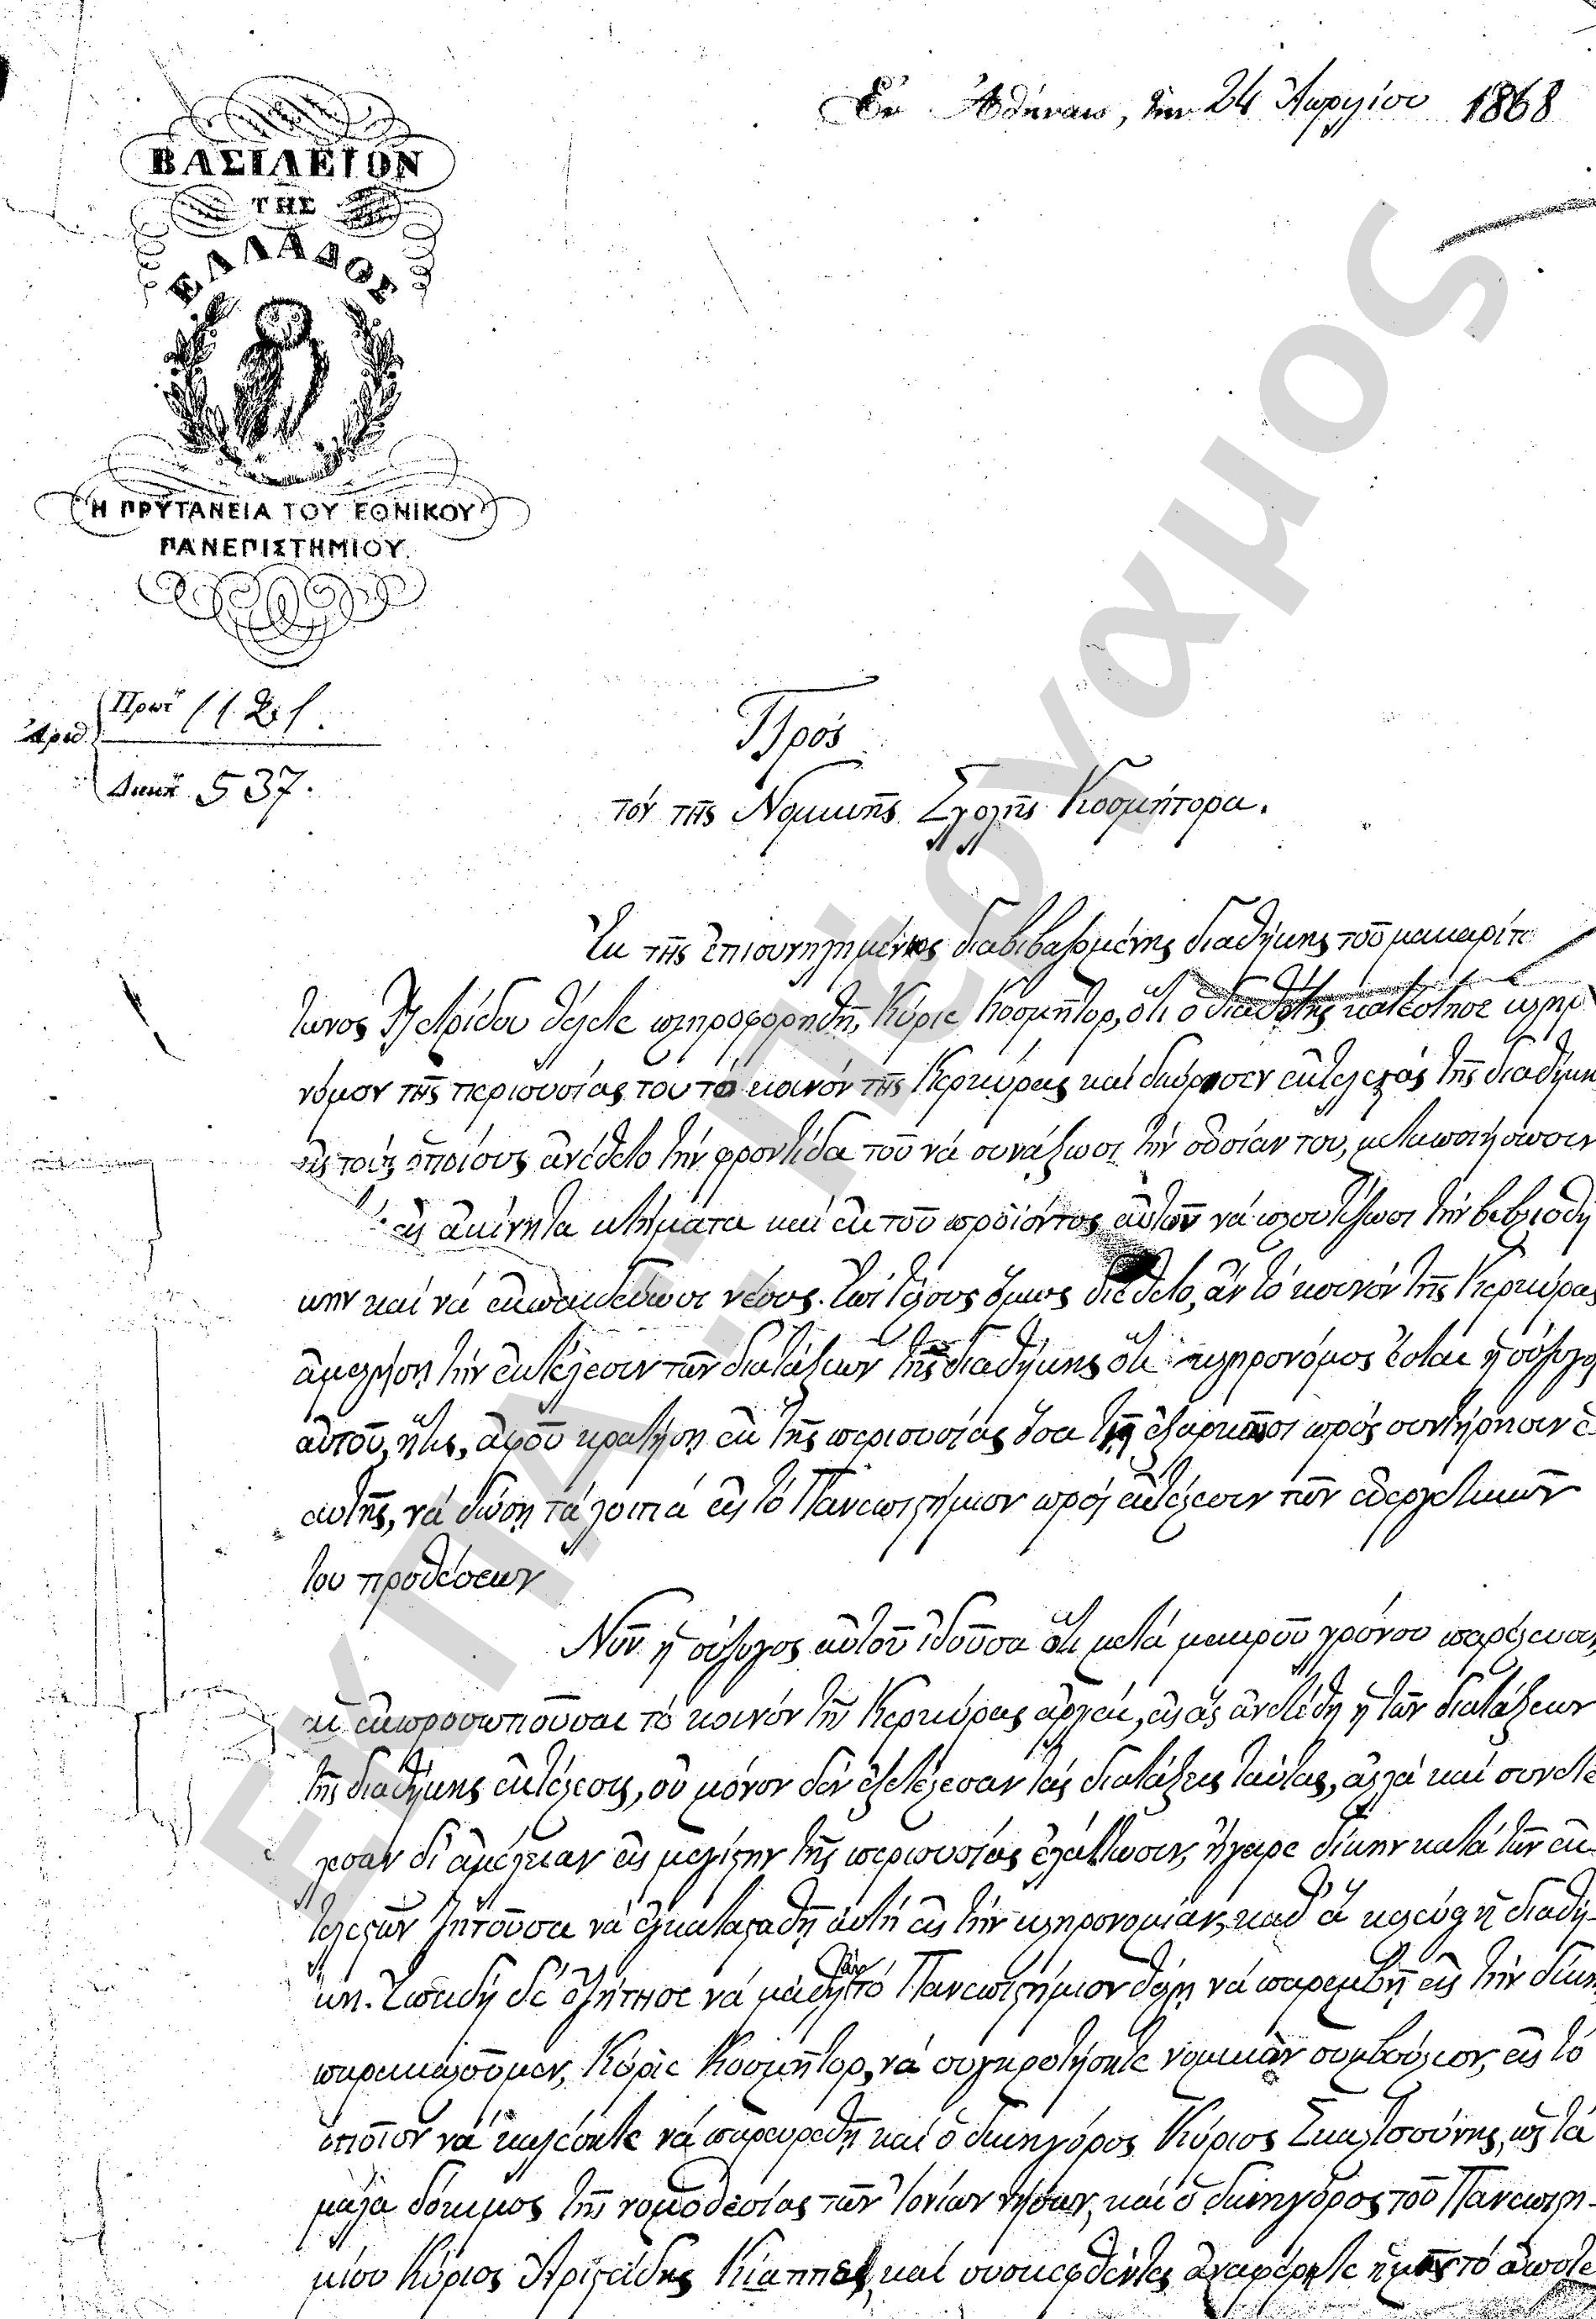 Ἐν Ἀθήναις, τὴν 24 Ἀπριλίου 1868
ΒΑΣΙΛΕΙΟΝ
ΤΗΣ
ΕΛΛΑΔΟΣ
Η ΠΡΥΤΑΝΕΙΑ ΤΟΥ ΕΘΝΙΚΟΥ
ΠΑΝΕΠΙΣΤΗΜΙΟΥ.
Πρωτ 1121.
Ἀριθ.
Διεκπ. 537.
Πρός
τόν τῆς Νομικῆς Σχολῆς Κοσμήτορα.
Ἐκ τῆς ἐπισυνημμένης διαβιβαζομένης διαθήκης τοῦ μακαρίτ
θέλετε πληροφορηθῆ, Κύριε Κοσμῆτορ, ὅτι ὁ διαθέτης κατέστησε κληρ
νόμον τῆς περιουσίας του τό κοινόν τῆς Κερκύρας καί διώρισεν ἐκτελεστάς τῆς διαθήκη
εἰς τούς ὁποίους ἀνέθετο τήν φροντίδα τοῦ νά συνάξωσι τήν οὐσίαν του, μεταποιήσωσιν
εἰς ἀκίνητα κτήματα καί ἐκ τοῦ προϊόντος αὐτῶν νά πλουτίζωσι τήν βιβλιοθή
κην καί νά ἐκπαιδεύωσι νέους. Ἐπί τέλους ὅμως διέθετο, ἄν τό κοινόν τῆς Κερκύρας
ἀμελήσῃ τήν ἐκτέλεσιν τῶν διατάξεων τῆς διαθήκης ὅτι κληρονόμος ἔσται ἡ σύζυγος
αὐτοῦ, ἥτις, ἀφοῦ κρατήσῃ ἐκ τῆς περιουσίας ὅσα τῇ ἐξαρκῶσι πρός συντήρησιν ἑ
αυτῆς, νά δώσῃ τά λοιπά εἰς τό Πανεπιστήμιον πρός ἐκτέλεσιν τῶν εὐεργετικῶν
του προθέσεων
Νῦν ἡ σύζυγος αὐτοῦ ἰδοῦσα ὅτι μετά μακροῦ χρόνου παρέλευσιν
αἱ ἐκπροσωποῦσαι τό κοινόν τῆς Κερκύρας ἀρχαί, εἰς ἅς ἀνετέθη ἡ τῶν διατάξεων
τῆς διαθήκης ἐκτέλεσις, οὐ μόνον δέν ἐξετέλεσαν τάς διατάξεις ταύτας, ἀλλά καί συνετέ
λεσαν δι' ἀμέλειαν εἰς μεγίστην τῆς περιουσίας ἐλάττωσιν, ἤγειρε δίκην κατά τῶν ἐκ-
τελεστῶν ζητοῦσα νά ἐγκατασταθῇ αὐτή εἰς τήν κληρονομίαν, καθ' ἅ κελεύει ἡ διαθή-
κη. Ἐπειδή δέ ἐζήτησε νά μάθῃ ἐάν τό Πανεπιστήμιον θέλῃ νά παρεμβῇ εἰς τήν δίκην
παρακαλοῦμεν, Κύριε Κοσμῆτορ, νά συγκροτήσητε νομικόν συμβούλιον, εἰς τό
ὁποῖον νά καλέσητε νά παρευρεθῇ καί ὁ δικηγόρος Κύριος Σκαλτσούνης, ὡς τά
μάλα δόκιμος τῆς νομοθεσίας τῶν Ἰονίων νήσων, καί ὁ δικηγόρος τοῦ Πανεπιστη-
μίου Κύριος Ἀριστείδης Κίαππες, καί συσκεφθέντες ἀναφέρητε ἡμῖν τό ἀποτέ
ΕΚΠΑ - Πέργαμος